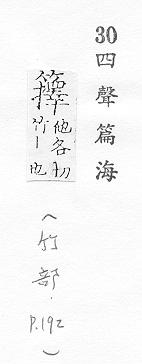 30四聲篇海
籜他各切
竹丨也
（竹部．P.192）